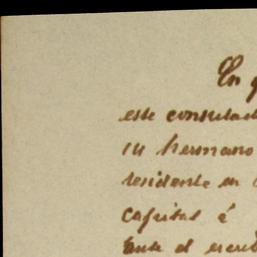 En
este consulad
su hermano
residente en
capital é
Ante el escrib